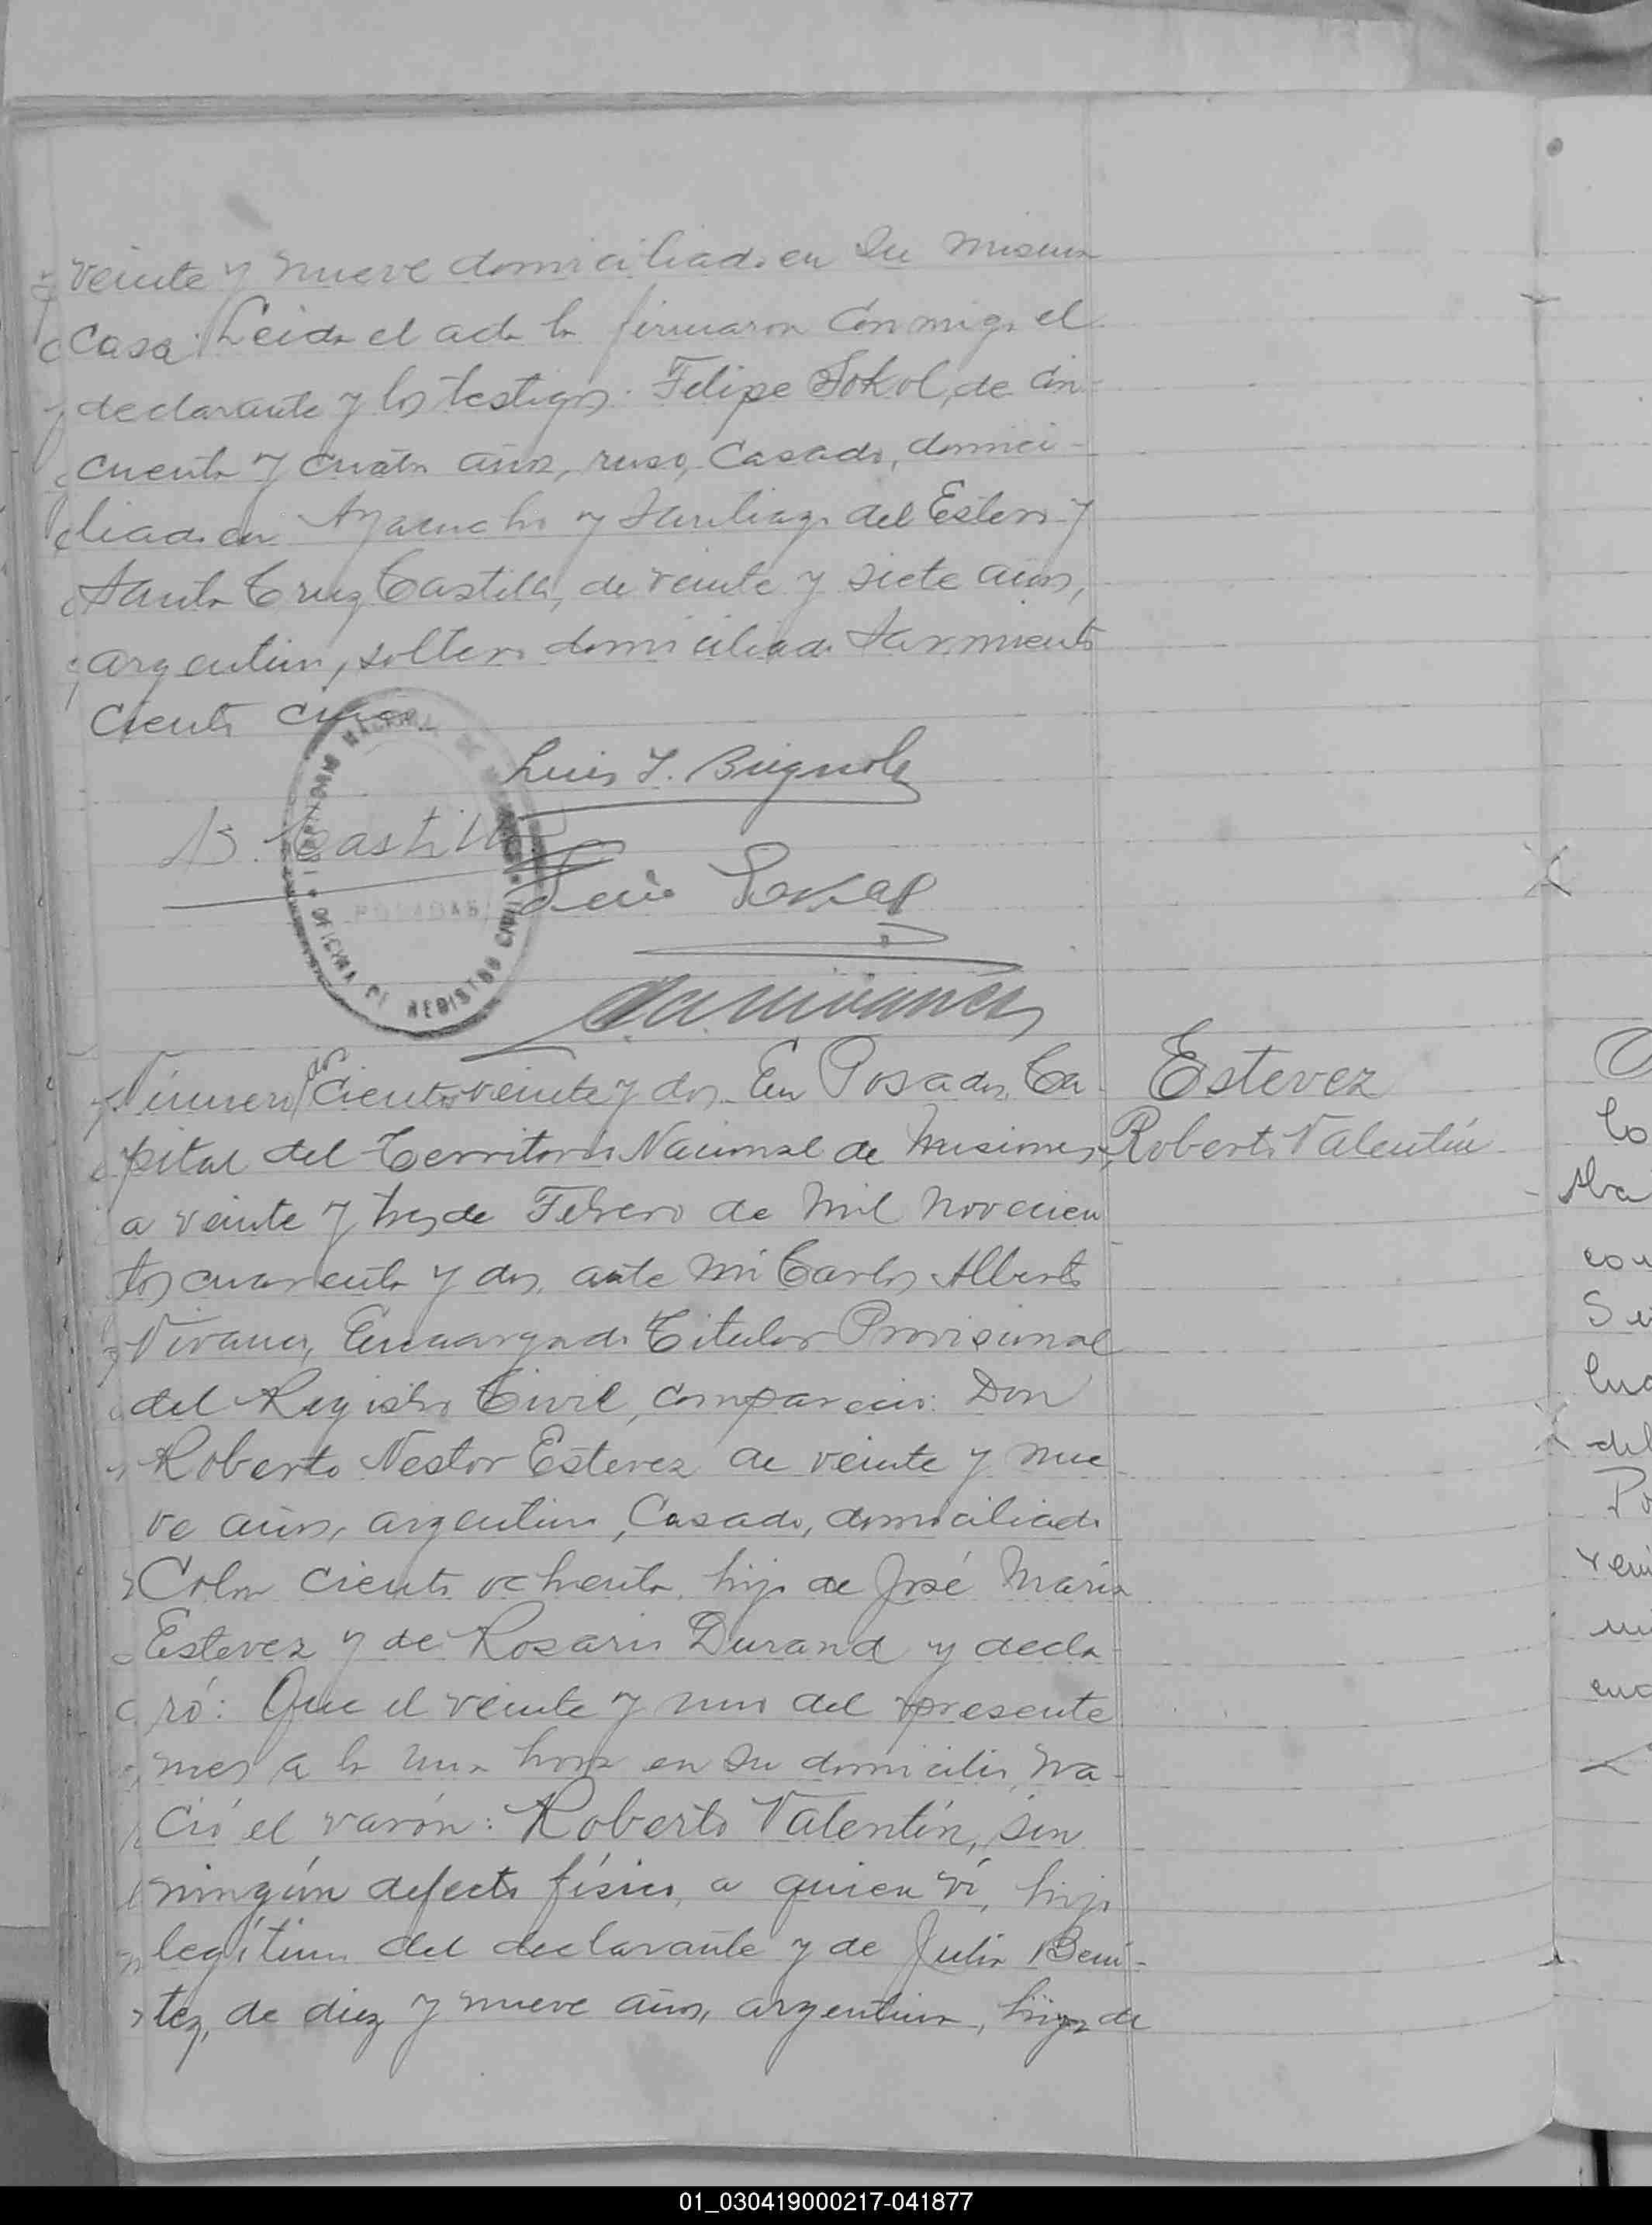 veinte y nueve domiciliado en su misma
casa. Leida el acta la firmaron conmigo el
declarante y los testigos: Felipe Sokol, de cin-
cuenta y cuatro años, ruso, casado, domici-
liado en Ayacucho y Santiago del Estero y
Santa Cruz Castillo, de veinte y siete años,
argentino, soltero domiciliado Sarmiento
ciento cinco.
Luis
S. Castillo
TERRITORIO NACIONAL DE MISIONES
POSADAS
OFICINA DE REGISTRO CIVIL
Número dos cientos veinte y dos. En Posadas, Ca-
pital del Territorio Nacional de Misiones,
a veinte y tres de Febrero de mil novecien
tos cuarenta y dos, ante mi Carlos Alberto
Vivanco, Encargado Titular Provisional
del Registro Civil, compareció: Don
Roberto Nestor Estevez de veinte y nue
ve años, argentino, casado, domiciliado
Colon ciento ochenta, hijo de José María
Estevez y de Rosario Durand y decla-
ró: Que el veinte y uno del presente
mes a la una hora en su domicilio, na-
ció el varón: Roberto Valentín, sin
ningún defecto físico, a quien ví, hijo
legítimo del declarante y de Julia Bení-
tez, de diez y nueve años, argentina, hija de
Estevez
Roberto Valentín
01_030419000217-041877